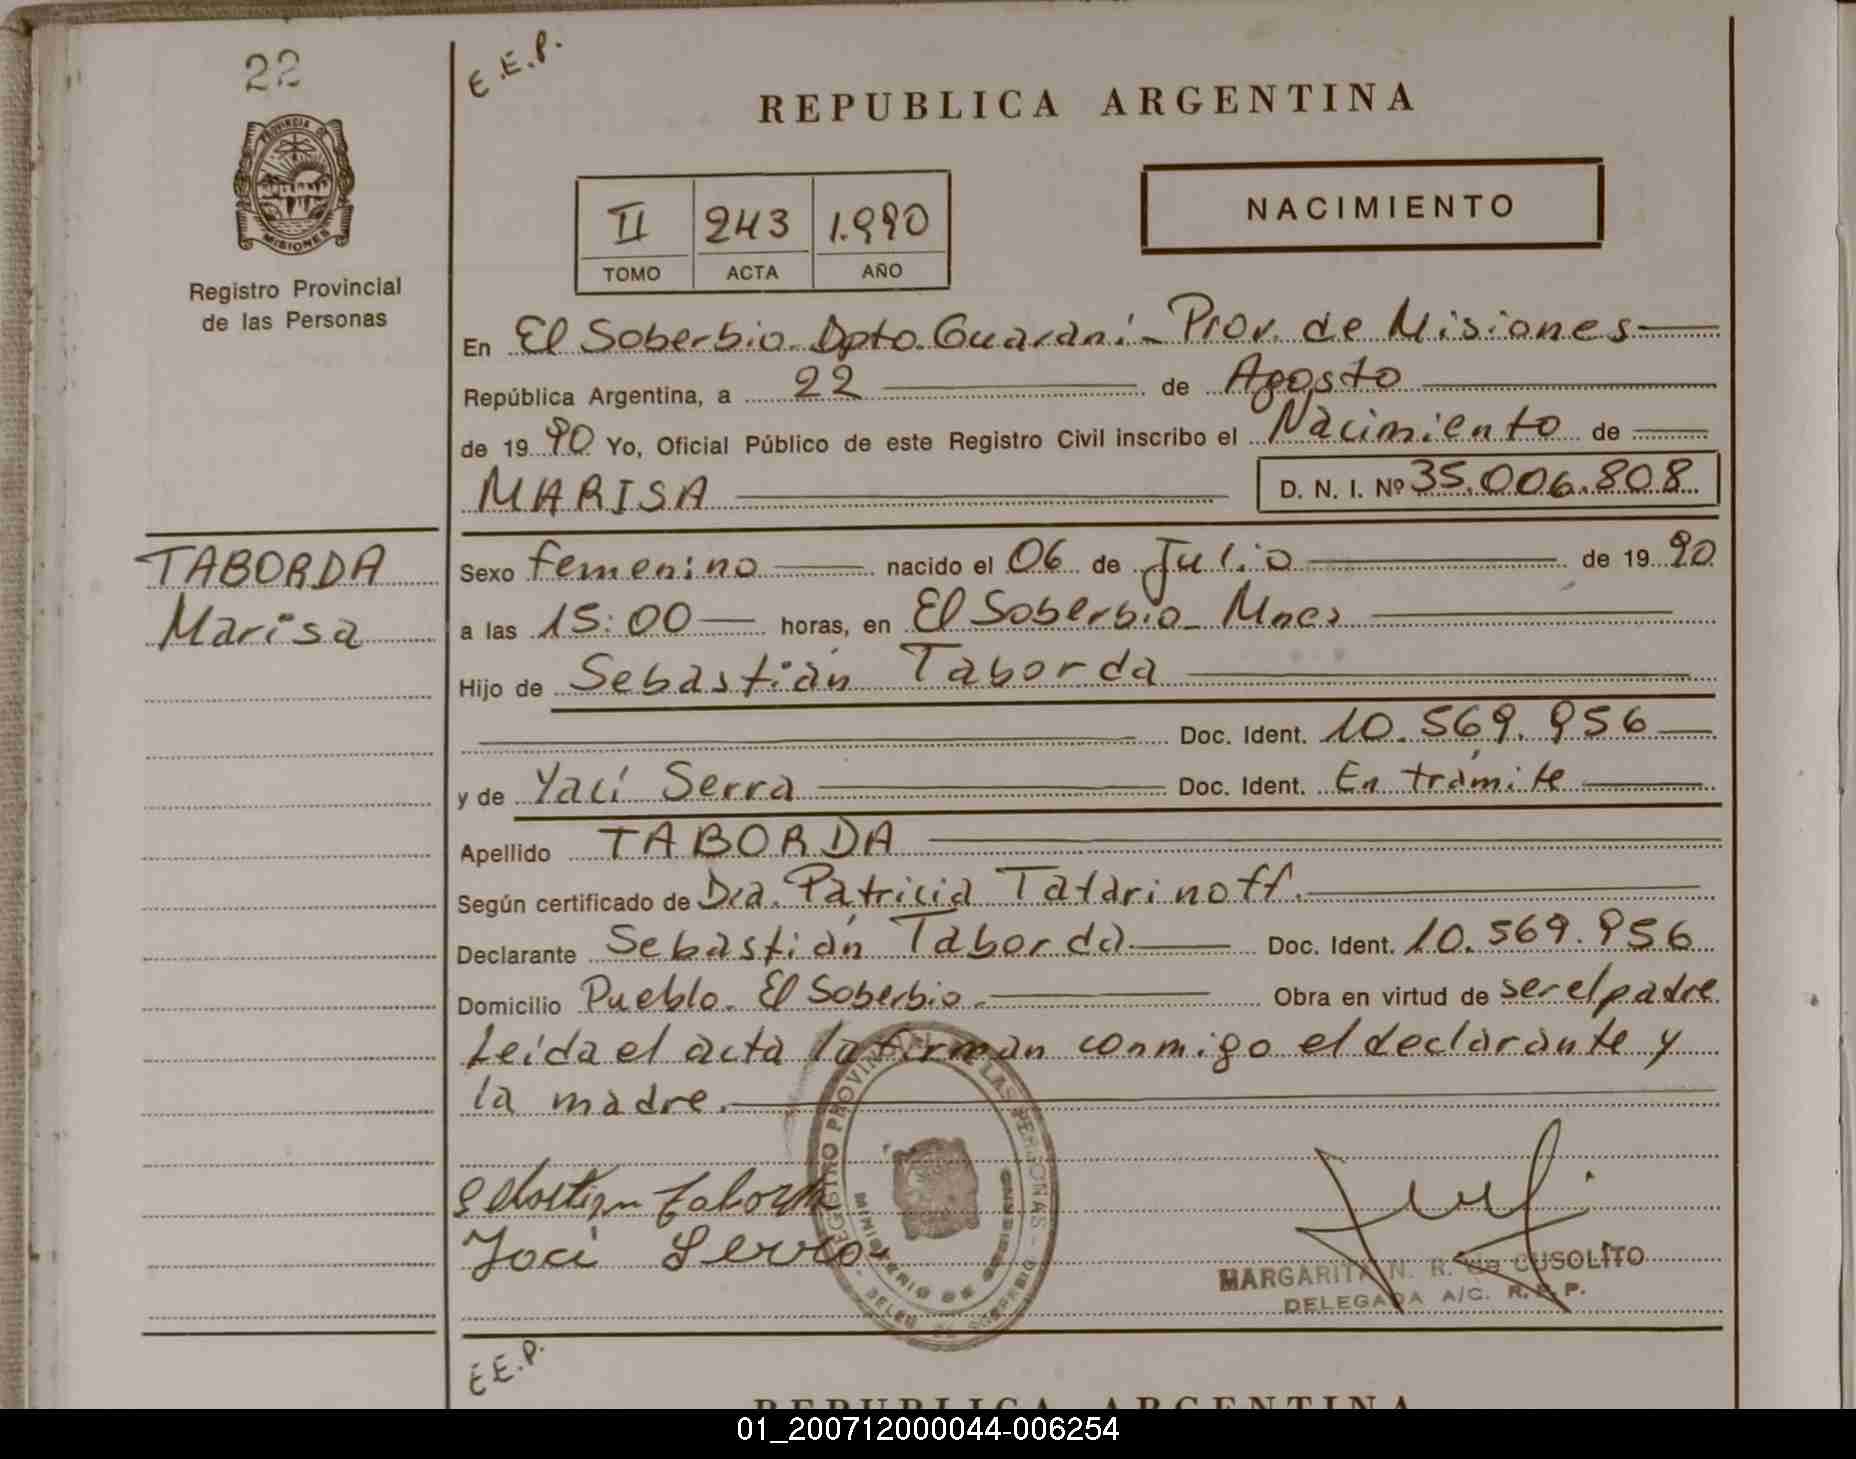 22
E.E.P.
REPUBLICA ARGENTINA
PROVINCIA DE
MISIONES
Registro Provincial
de las Personas
II 243 1.990
TOMO ACTA AÑO
NACIMIENTO
En El Soberbio. Dpto. Guaraní - Prov. de Misiones
República Argentina, a 22 de Agosto
de 19 90 Yo, Oficial Público de este Registro Civil inscribo el Nacimiento de
MARISA D. N. I. Nº 35.006.808
TABORDA
Marisa
Sexo femenino nacido el 06 de Julio de 19 90
a las 15:00 horas, en El Soberbio - Mnes
Hijo de Sebastián Taborda
Doc. Ident. 10.569.956
y de Yací Serra Doc. Ident. En trámite
Apellido TABORDA
Según certificado de Dra. Patricia Tatarinoff.
Declarante Sebastián Taborda Doc. Ident. 10.569.956
Domicilio Pueblo. El Soberbio. Obra en virtud de ser el padre
Leída el acta la firman conmigo el declarante y
la madre.
REGISTRO PROVINCIAL DE LAS PERSONAS
MINISTERIO DE GOBIERNO
Sebastian Taborda
Yaci Serra
MARGARITA N. R. de CUSOLITO
DELEGADA A/C. R.P.P.
E.E.P.
REPUBLICA ARGENTINA
01_200712000044-006254